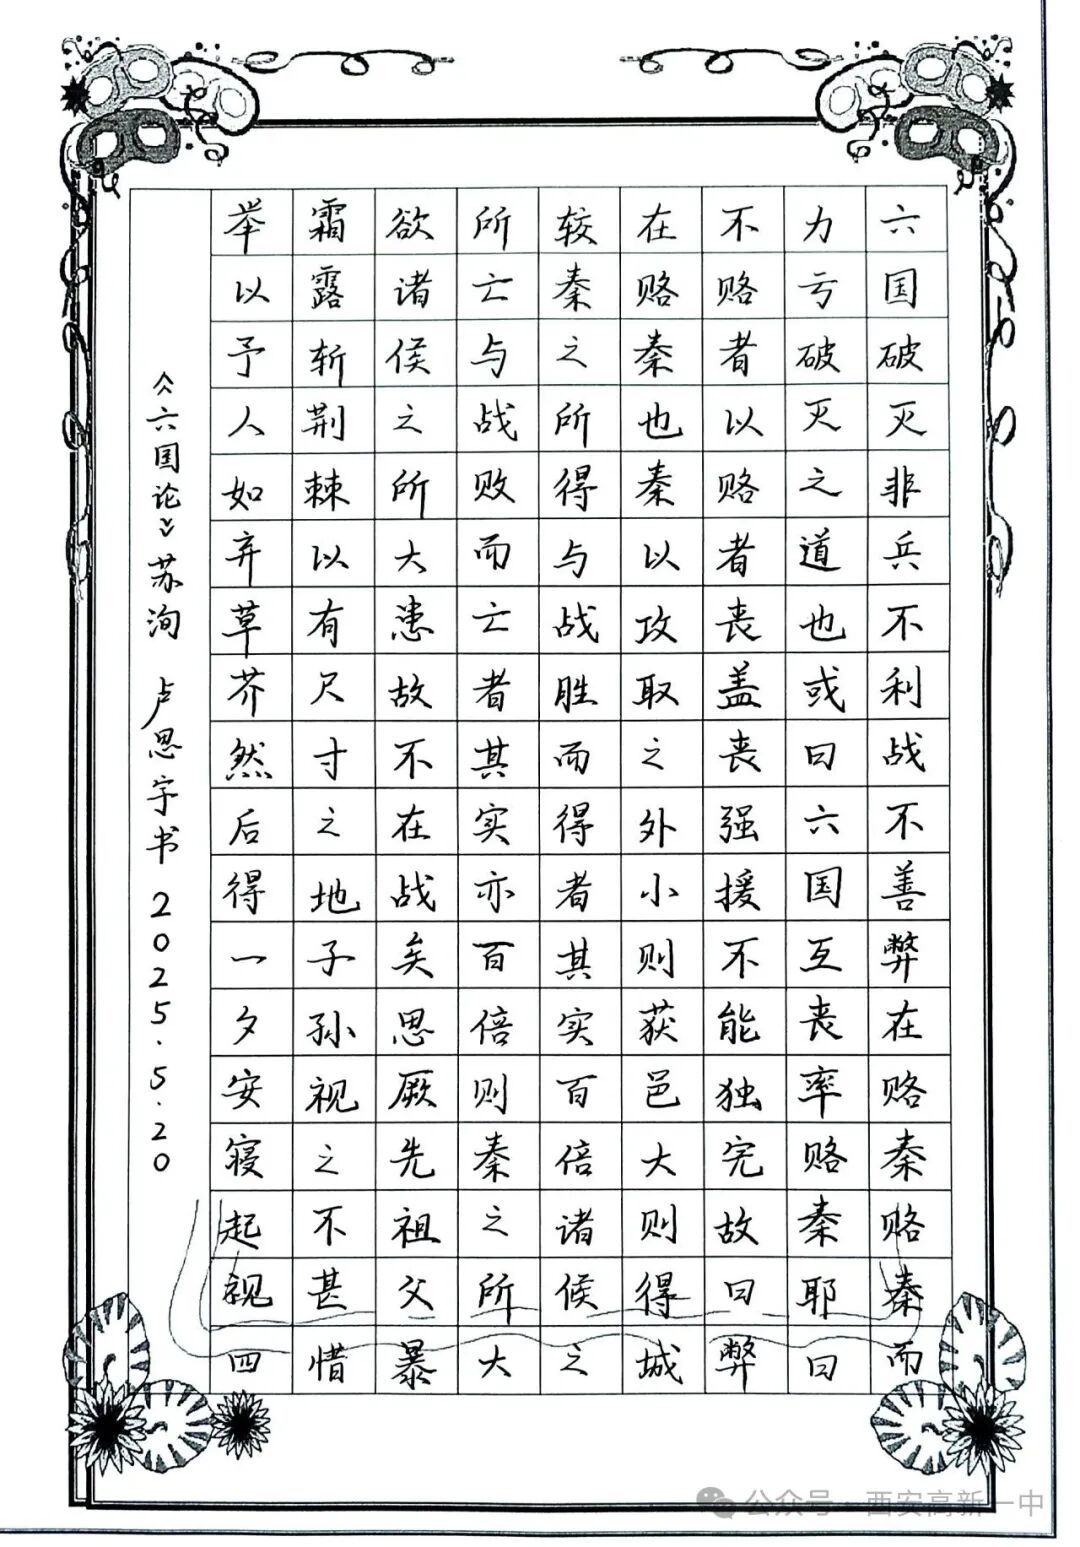 六国破灭非兵不利战不善弊在赂秦赂秦而
力亏破灭之道也或曰六国互丧率赂秦耶曰
不赂者以赂者丧盖丧强援不能独完故曰弊
在赂秦也秦以攻取之外小则获邑大则得城
较秦之所得与战胜而得者其实百倍诸候之
所亡与战败而亡者其实亦百倍则秦之所大
欲诸侯之所大患故不在战矣思厥先祖父暴
霜露斩荆棘以有尺寸之地子孙视之不甚惜
举以予人如弃草芥然后得一夕安寝起视四
《六国论》苏洵 卢思宇书 2025.5.20
公众号·西安高新一中